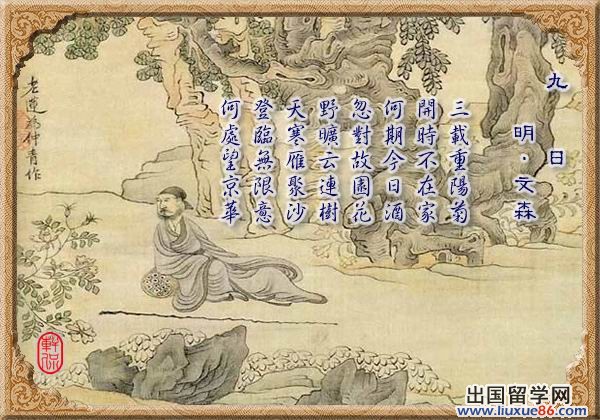 九日
明·文森
三載重陽菊
開時不在家
何期今日酒
忽對故園花
野曠云連樹
天寒雁聚沙
登臨無限意
何處望京華
老蓮為仲青作
軒
出国留学网
www.liuxue86.com